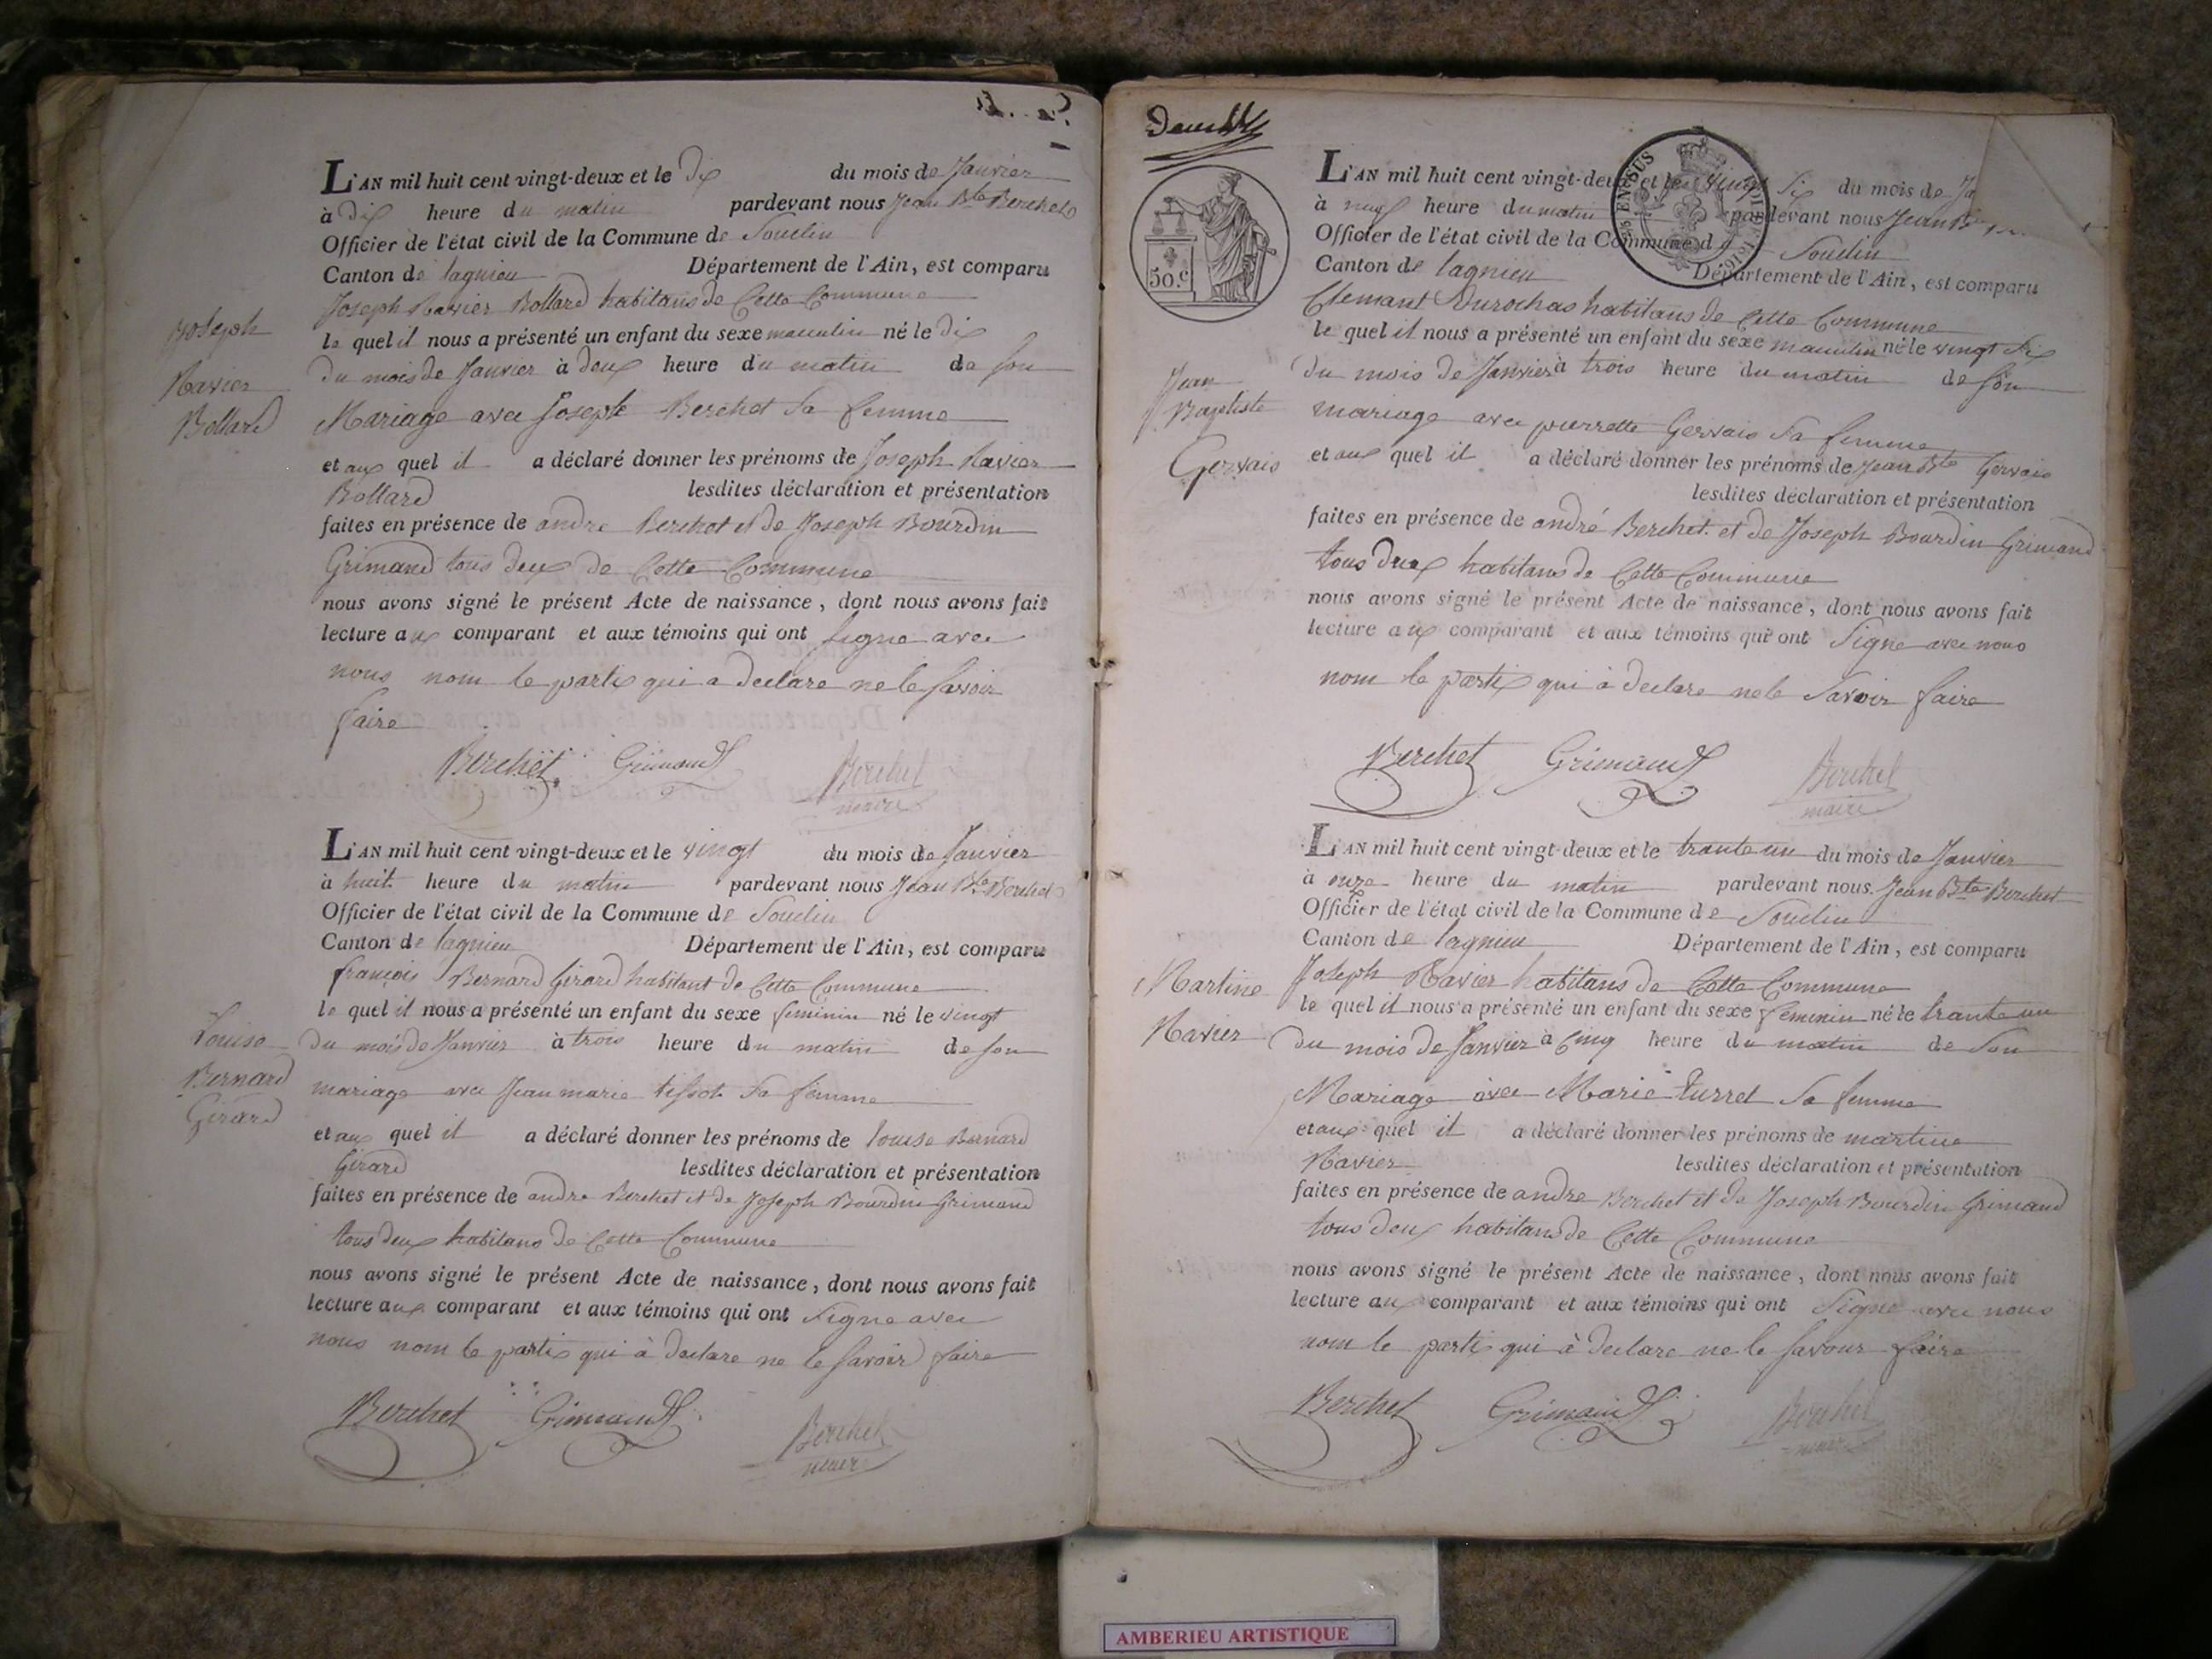 L'AN mil huit cent vingt-deux et le Dix du mois de Janvier
à Dix heure du matin pardevant nous Jean Bte Berchet
Officier de l'état civil de la Commune de Souclin
Canton de lagnieu Département de l'Ain, est comparu
Joseph Ravier Bollard habitans de Cette Commune
le quel il nous a présenté un enfant du sexe masculin né le Dix
du mois de Janvier à deux heure du matin de son
Mariage avec Josephte Berchet sa femme
et aux quel il a déclaré donner les prénoms de Joseph Ravier
Bollard lesdites déclaration et présentation
faites en présence de andre Berchet et de Joseph Bourdin
Grimand tous deux de Cette Commune
nous avons signé le présent Acte de naissance, dont nous avons fait
lecture aux comparant et aux témoins qui ont signe avec
nous nom le partis qui a declare ne le savoir
faire
Joseph
Ravier
Bollard
Berchet Grimand Berchet
maire
L'AN mil huit cent vingt-deux et le vingt du mois de Janvier
à huit heure du matin pardevant nous Jean Bte Berchet
Officier de l'état civil de la Commune de Souclin
Canton de lagnieu Département de l'Ain, est comparu
françois Bernard Girard habitant de Cette Commune
le quel il nous a présenté un enfant du sexe feminin né le vingt
du mois de Janvier à trois heure du matin de son
mariage avec Jean marie tissot sa femme
et aux quel il a déclaré donner les prénoms de louise Bernard
Girard lesdites déclaration et présentation
faites en présence de andre Berchet et de Joseph Bourdin Grimand
tous deux habitans de Cette Commune
nous avons signé le présent Acte de naissance, dont nous avons fait
lecture aux comparant et aux témoins qui ont signe avec
nous nom le partis qui à declare ne le savoir faire
Louise
Bernard
Girard
Berchet Grimand Berchet
maire
50.c
L'AN mil huit cent vingt-deux et le vingt six du mois de Ja
à neuf heure du matin pardevant nous Jean B
Officier de l'état civil de la Commune d Souclin
Canton de lagnieu Département de l'Ain, est comparu
Clemant Durochas habitans de Cette Commune
le quel il nous a présenté un enfant du sexe masculin né le vingt six
du mois de Janvier à trois heure du matin de son
mariage avec pierrette Gervais sa femme
et aux quel il a déclaré donner les prénoms de Jean Bte Gervais
lesdites déclaration et présentation
faites en présence de andré Berchet et de Joseph Bourdin Grimand
tous deux habitans de Cette Commune
nous avons signé le présent Acte de naissance, dont nous avons fait
lecture aux comparant et aux témoins qui ont signe avec nous
nom le partis qui à declare ne le savoir faire
Jean
Baptiste
Gervais
Berchet Grimand Berchet
maire
L'AN mil huit cent vingt-deux et le trante un du mois de Janvier
à onze heure du matin pardevant nous Jean Bte Berchet
Officier de l'état civil de la Commune de Souclin
Canton de lagnieu Département de l'Ain, est comparu
Joseph Ravier habitans de Cette Commune
le quel il nous a présenté un enfant du sexe feminin né le trante un
du mois de Janvier à Cinq heure du matin de son
Mariage avec Marie turret sa femme
et aux quel il a déclaré donner les prénoms de martine
Ravier lesdites déclaration et présentation
faites en présence de andre Berchet et de Joseph Bourdin Grimand
tous deux habitans de Cette Commune
nous avons signé le présent Acte de naissance, dont nous avons fait
lecture aux comparant et aux témoins qui ont signe avec nous
nom le partis qui à declare ne le savour faire
Martine
Ravier
Berchet Grimand Berchet
maire
AMBERIEU ARTISTIQUE